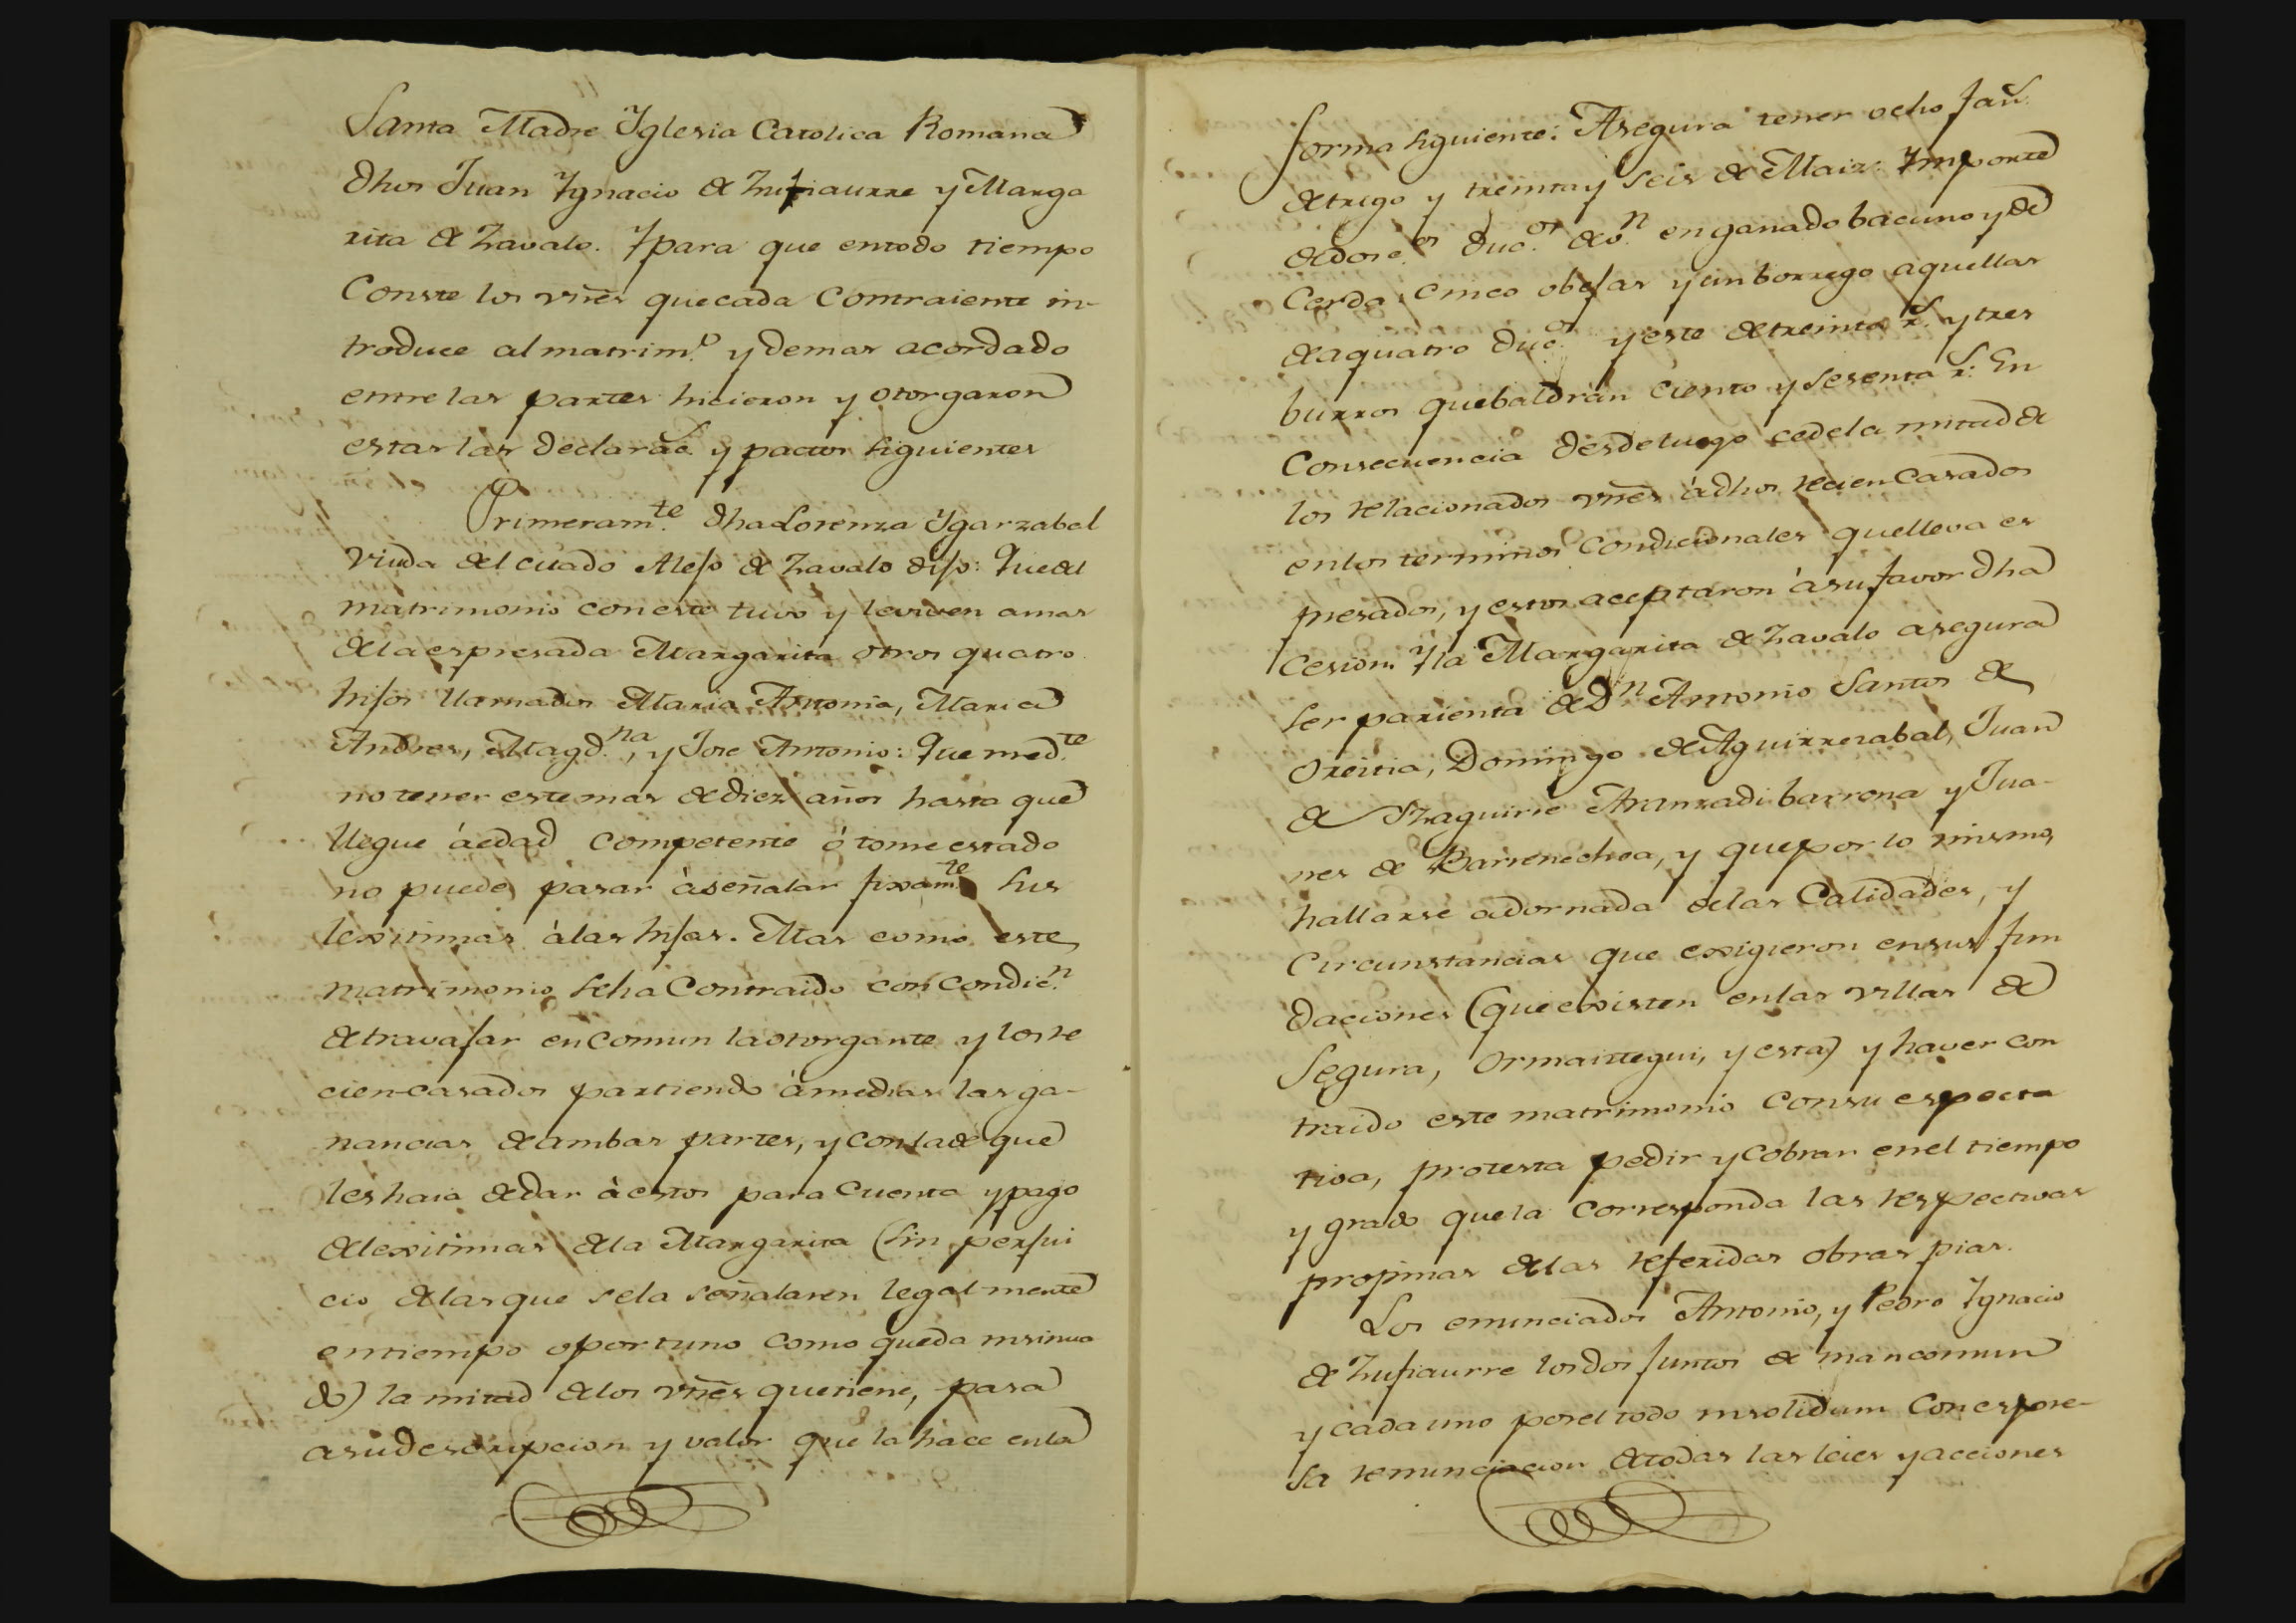 Santa Madre Yglesia Catolica Romana
dhos Juan Ygnacio de Zufiaurre y Marga
rita de Zavalo. Y para que entodo tiempo
Conste los vnēs quecada Contraiente in-
troduce al matrim.º y demas acordado
entre las partes hicieron y otorgaron
estas las declarac.s y pactos siguientes
Primeram.te dha Lorenza Ygarzabal
Viuda del citado Alejo de Zavalo dijo: Que del
matrimonio con este tuvo y le viven amas
dela espresada Margarita otros quatro
hijos llamados Maria Antonia, Maria
Andres, Magd.na, y Jose Antonio: Que med.te
no tener este mas de diez años hasta que
llegue á edad competente ó tome estado
no puede pasar à señalar fixam.te sus
lexitimas à las hijas. Mas como este
matrimonio seha Contraido con Condic.n
de travajar en Comun la otorgante y los re
cien-casados partiendo à medias las ga-
nancias de ambas partes, y con la de que
les haia de dar à estos para Cuenta y pago
de lexitimas de la Margarita (sin perjui
cio de las que se la señalaren legal-mente
en tiempo oportuno como queda insinua
do) la mitad de los vnēs que tiene, pasa
a su descripcion y valor que la hace en la
forma siguiente: Asegura tener ocho fan.s
de trigo y treinta y seis de Maiz. Importe
de doc.os duc.os de v.n en ganado bacuno y de
Cerda, cinco obejas y un borrego aquellas
de a quatro duc.os y este de treinta r.s y tres
burros que baldràn Ciento y sesenta r.s En
Consecuencia desde luego cede la mitad de
los relacionados vnēs à dhos recien Casados
en los terminos Condicionales que lleva es
presados, y estos aceptaron à su favor dha
Cesion. Y la Margarita de Zavalo asegura
ser parienta de D.n Antonio Santos de
Oreitia, Domingo de Aguirrezabal, Juan
de Yzaguirre Aranzadibarrena y Jua-
nes de Barrenechea, y que por lo mismo,
hallarse adornada de las Calidades, y
Circunstancias que exigieron en sus fun
daciones (que existen en las villas de
Segura, Ormaiztegui, y esta) y haver con
traido este matrimonio con su especta
tiva, protesta pedir y Cobrar en el tiempo
y grado que la Corresponda las respectivas
propinas de las referidas obras pias.
Los enunciados Antonio, y Pedro Ygnacio
de Zufiaurre los dos juntos de mancomun
y cada uno por el todo insolidum Con espre-
sa renunciacion de todas las leies y acciones